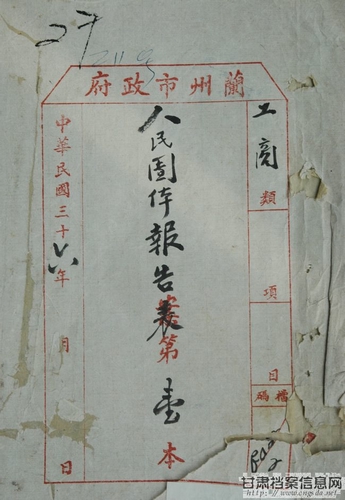 27
蘭州市政府
工商類
項
目
檔碼
人民團体報告表
案第壹本
中華民國三十六年 月 日
甘肃档案信息网
www.cngsda.net